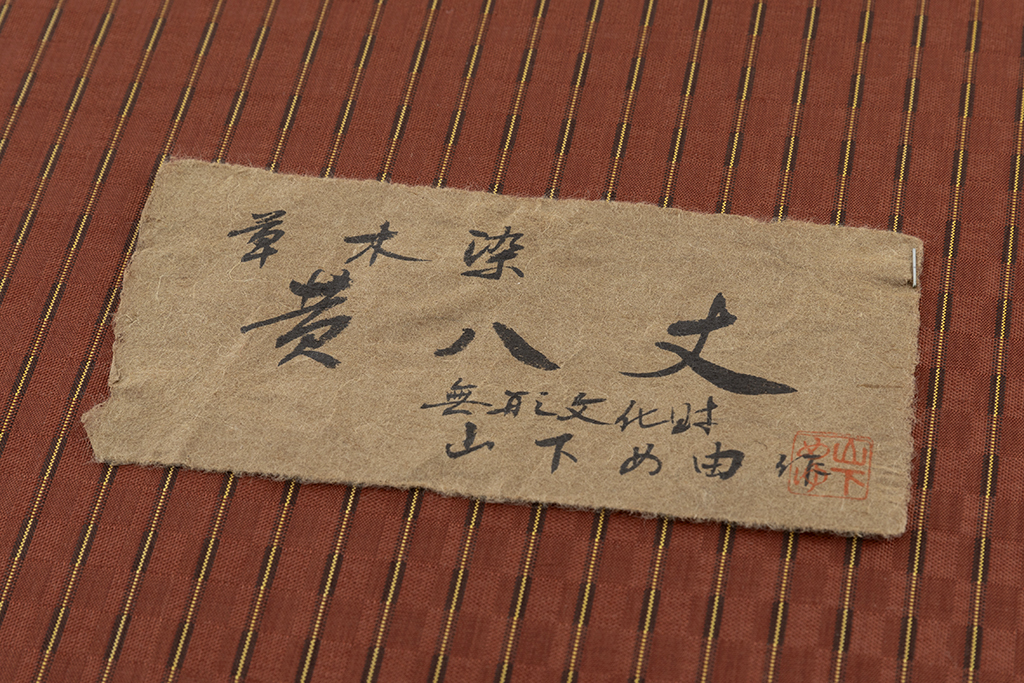 草木染
黄八丈
無形文化財
山下め由作
山下